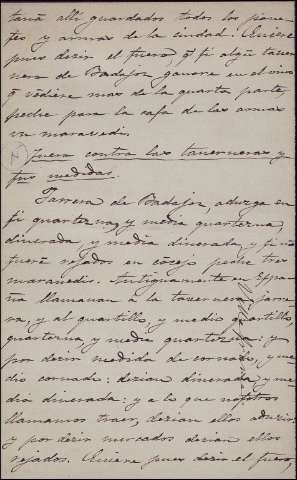 tauā alli guardados todos los pione-
tes y armas de la ciudad: Quiere
pues dezir el fuero, q̃ si algũ taver
nera de Badajoz ganare en el vino
q̃ vēdiere mas de la quarta parte,
peche para la casa de las armas
vn maravedi.
Fuero contra las taverneras y
sus medidas.
Jarrera de Badajoz, aduzga en
si quarterna, y media quarterna,
dinerada, y media dinerada, y si nō
fuerē rejados en cōcejo peche tres
maravedis. Antiguamente en Espa-
ña llamavan a la tavernera jarre-
ra, y al quartillo, y medio quartillo,
quarterna, y media quarterna: y
por dezir medida de cornado, y me-
dio cornado: dezian dinerada, y me-
dia dinerada: y a lo que nosotros
llamamos traer, dezian ellos aduzir:
y por dezir mercados dezian ellos
rejados. Quiere pues dezir el fuero,